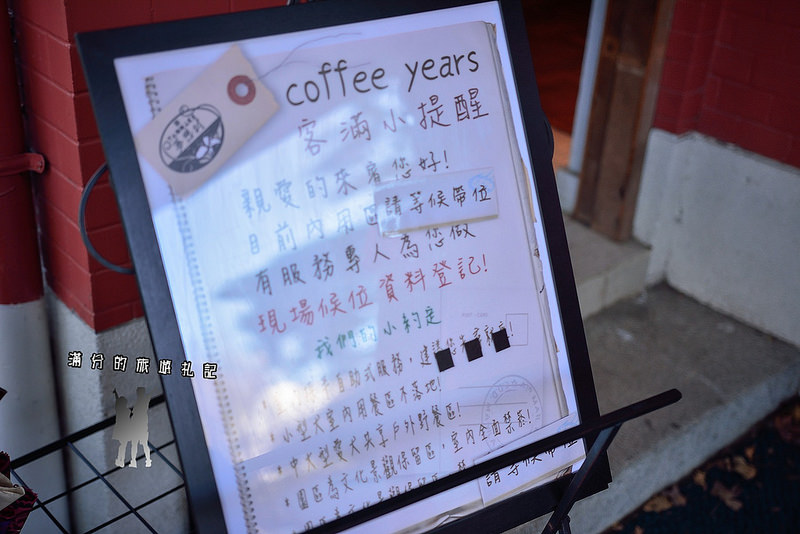 coffee years
客滿小提醒
親愛的來賓您好!
目前內用區請等候帶位
有服務專人為您做
現場候位資料登記!
我們的小約定
自助式服務，建議您
小型犬室內用餐區不落地!
中大型愛犬來享戶外野餐區!
園區為文化景觀保留區，室內全面禁菸!
請等候帶位
滿分的旅遊札記